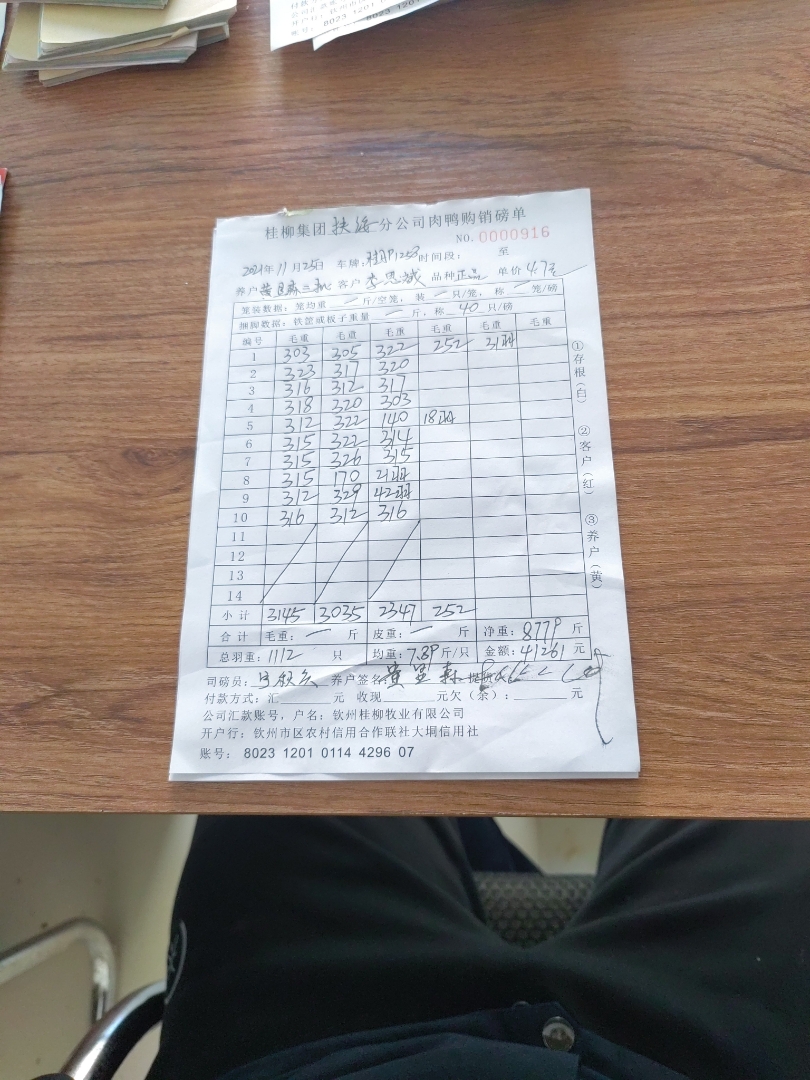 账号: 8023 1201
桂柳集团 扶绥 分公司肉鸭购销磅单
NO.0000916
2021年11月25日 车牌: 桂 1253 时间段: 至
养户 客户 李恩诚 品种 正品 单价 4.7元
笼装数据: 笼均重 一 斤/空笼, 装 一 只/笼, 称 一 笼/磅
捆脚数据: 铁筐或板子重量 一 斤, 称 40 只/磅
编号 毛重 毛重 毛重 毛重 毛重 毛重
1 303 305 322 252 31羽
2 323 317 320
3 316 312 317
4 318 320 303
5 312 322 140 18羽
6 315 322 314
7 315 326 315
8 315 170 21羽
9 312 329 42羽
10 316 312 316
11
12
13
14
小计 3145 3035 2347 252
合计 毛重: 一 斤 皮重: 一 斤 净重: 8779 斤
总羽重: 1112 只 均重: 7.89 斤/只 金额: 41261 元
司磅员: 养户签名: 黄 森
付款方式: 汇 元 收现 元欠(余): 元
公司汇款账号, 户名: 钦州桂柳牧业有限公司
开户行: 钦州市区农村信用合作联社大垌信用社
账号: 8023 1201 0114 4296 07
①存根(白) ②客户(红) ③养户(黄)